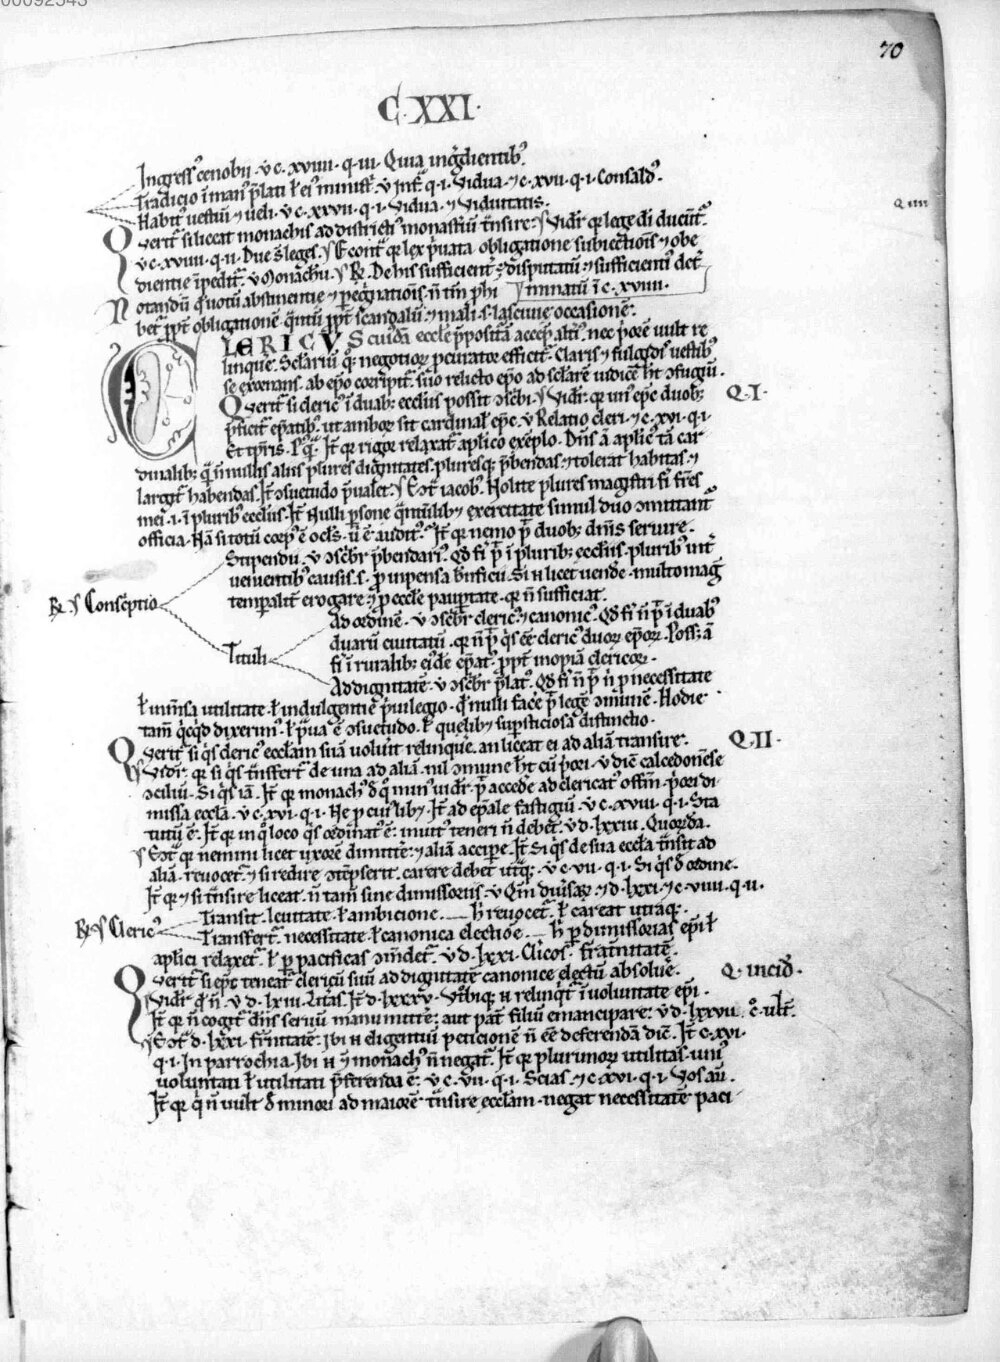 00092543
70
C. XXI.
Ingress᷒ cenobii. v̄ c. xviiii. q. iii. Quia ingr̄dientib᷒.
Tradicio ī man᷒ p̄lati ł ei᷒ minist̄. v̄ inf̄ q. i. Vidua. ⁊ c. xvii. q. i. Consald᷒.
Habit᷒ uestiū ⁊ ueli. v̄ c. xxvii. q. i. Vidua. ⁊ Viduitatis.
Q. iiii
Q uerit᷑ si liceat monachis ad districti᷒ monast̄iū t̄nsire. Videt᷑ qꝫ lege dī ducunt᷑.
v̄ c. xviiii. q. ii. Due s̄ leges. Econt᷑ qꝫ lex p̄uata obligatione subiectiōis ⁊ obe
dientie īpedit᷑. v̄ Monachū. R̄. De his sufficient᷑ ē disputatū ⁊ sufficient᷑ det᷑
minatū ī c. xviiii.
N otandū q̇ uotū abstinentie ⁊ peg̃nationis n̄ tm̄ phi
bet᷑ ꝓpt᷑ obligationē q̄ntū ꝓpt᷑ scandalū ⁊ mali. s. lasciuie occasionē.
C LERICVS cuidā eccl̄e p̄posit᷒ā accep̄ alti᷒. nec p̄orē uult re
linquere. Sc̄lariū qꝫ negotioꝝ ꝓcuratorē efficit᷑. Claris ⁊ fulgidis uestib᷒
se exornans. ab ep̄o corripit᷑. suo relicto ep̄o ad sc̄larē iudicē ht̄ ꝯfugiū.
Q uerit᷑ si cleric᷒ ī duabꝫ eccl̄iis possit ꝯsc̄bi. Videt᷑ qꝫ un᷒ ep̄c duobꝫ
Q. I.
p̄ficit᷑ ep̄atib᷒. ut amboꝝ sit cardinal᷒ ep̄c. v̄ Relatio cleri. ⁊ c. xvi. q. i.
Et tp̄ris. It̄ qꝫ rigor relaxat᷑ aplico exēplo. Dn̄s ā aplic᷒ tā car
dinalibꝫ q̄ nōnullis aliis plures dignitates. pluresqꝫ p̄bendas ⁊ tolerat habitas. ⁊
largit᷑ habendas. It̄ ꝯsuetudo p̄ualet. Eꝯt᷑ iacob᷒. Nolite plures magistri fi. fr̄es
mei. i. ī plurib᷒ eccl̄iis. It̄ Nulli psone quālibꝫ exercitate simul duo ꝯmittant᷑
officia. Nā si totū corp᷒ ē ocl̄s. u. ē audit᷒. It̄ qꝫ nemo p̄ duobꝫ dn̄is seruire.
Stipendiū. v̄ ꝯsc̄br p̄bendari᷒. Qd̄ fi. p̄ ī pluribꝫ eccl̄iis. plurib᷒ int̄
uenientib᷒ causis. s. ꝓ inpensa bn̄ficii. Si n̄ licet uendere. multomag̃
temp̄alit̄ erogare. ⁊ p eccl̄e paup̄tate. qꝫ n̄ sufficiat.
R̄. Conscriptio
Ad ordinē. v̄ ꝯsc̄br cleric᷒. ⁊ canonic᷒. Qd̄ fi. n̄ p̄ ī duab᷒
duarū ciuitatū. qꝫ n̄ p̄ q̇s eē cleric᷒ duoꝝ ep̄oꝝ. Possꝫ ā
Tituli
fi. ī ruralibꝫ ei᷒dē ep̄at᷒. ꝓpt᷑ inopiā clericoꝝ.
Ad dignitatē. v̄ ꝯsc̄br p̄lat᷒. Qd̄ fi. n̄ p̄ n̄ p necessitate
ł inm̄sa utilitate. ł indulgentie p̄uilegio. q̇ nulli facē p̄ legē ꝯmunē. Hodie
tam̄ q̇cq̇d dixerim᷒. ł p̄ua ē ꝯsuetudo. ł quelibꝫ sup̄sticiosa distinctio.
Q uerit᷑ si q̇s cleric᷒ eccl̄am suā voluit relinquē. an liceat ei ad aliā transire.
Q. II.
Videt᷑. qꝫ si q̇s t̄nsfert᷑ de una ad aliā. nil ꝯmune ht̄ cū p̄ori. v̄ diē calcedonēse
ꝯciliū. Si q̇s iā. It̄ qꝫ monach᷒ de q̇ min᷒ uidet᷑. p̄ accedē ad clericat᷒ offm̄. p̄ori di
missa eccl̄a. v̄ c. xvi. q. i. Ne p cui᷒libꝫ. It̄ ad ep̄ale fastigiū. v̄ c. xviii. q. i. Sta
tutū ē. It̄ qꝫ in q̇ loco q̇s ordinat᷒ ē. inuit᷒ teneri n̄ debet. v̄ d. lxxiii. Quorūdā.
Eꝯt᷑ qꝫ nemini licet uxorē dimittē. ⁊ aliā accipe. It̄ Si q̇s de sua eccl̄a t̄nsit ad
aliā. reuocet᷑. ⁊ si redire ꝯtēpserit. carere debet utq̇ꝫ. v̄ c. vii. q. i. Si q̇s d̄ ordine.
It̄ qꝫ ⁊ si t̄nsire liceat. n̄ tam̄ sine dimissoriis. v̄ Qm̄ diuersaꝝ ⁊ d. lxxi. ⁊ c. viiii. q. ii.
Transit. leuitate. ł ambicione. — h̄ reuocet᷑. ł careat utraqꝫ.
R̄. Cleric᷒
Transfert᷑. necessitate. ł canonica electiōe. — h̄ p dimissorias ep̄i ł
aplici relaxet᷑. ł p pacificas ꝯm̄det᷑. v̄ d. lxxi. Clicos. fraternitatē.
Q uerit᷑ si ep̄c teneat᷑ clericū suū ad dignitatē canonice electū absoluē.
Q. incid̄.
Videt᷑ q̇ n̄. v̄ d. lxiii. Lr̄as. It̄ d. lxxxv. Vtbiqꝫ n̄ relinq̇t᷑ ī uoluntate ep̄i.
It̄ qꝫ n̄ cogit᷑ dn̄s seruū manumittē. aut pat̄ filiū emancipare. v̄ d. lxxvii. c᷒. ult̄.
Eꝯt᷑ d. lxxi. fr̄nitatē. Ibi n̄ diligentiū peticionē n̄ eē deferendā diē. It̄ c. xvi.
q. i. In parrochia. Ibi n̄ ⁊ monach᷒ n̄ negat᷑. It̄ qꝫ plurimoꝝ utilitas. uni᷒
uoluntati ł utilitati p̄ferenda ē. v̄ c. vii. q. i. Scias. ⁊ c. xvi. q. i. Vos aū.
It̄ qꝫ q̇ n̄ uult de minori ad maiorē t̄nsire eccl̄am. negat necessitatē paci